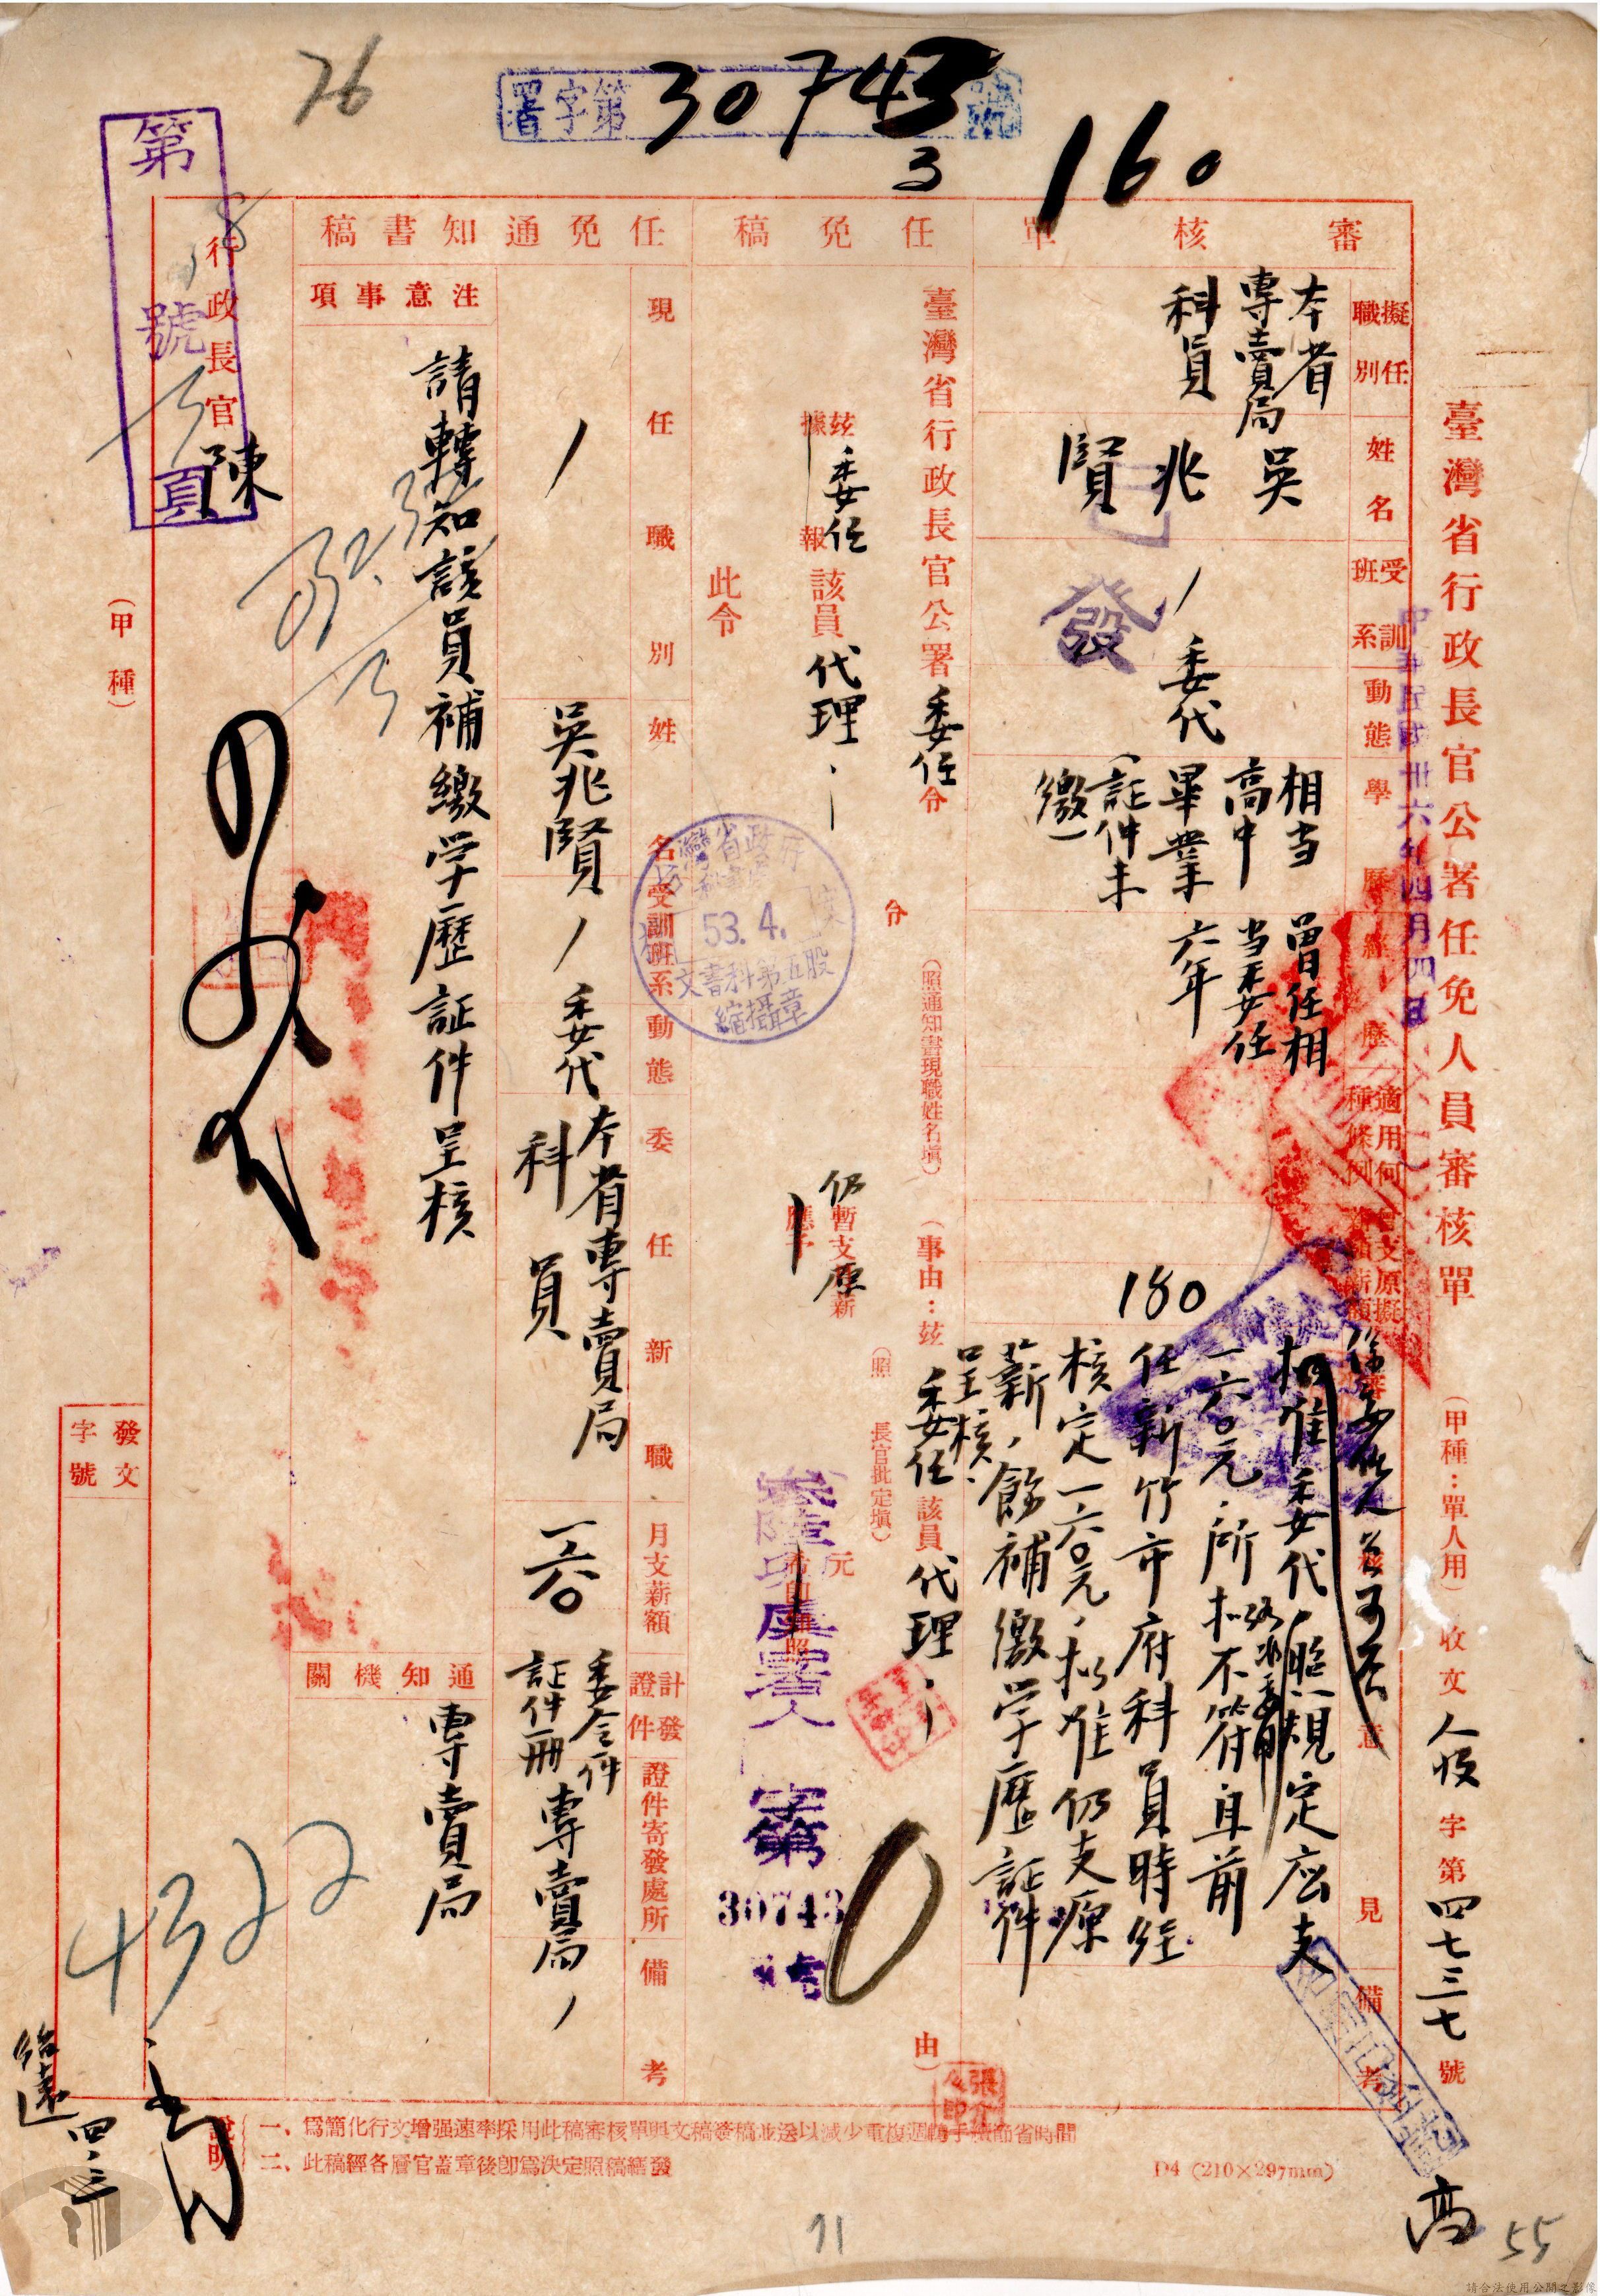 76
署字第30743號
3
160
第
號
頁
臺灣省行政長官公署任免人員審核單
(甲種:單人用)
收文人役字第四七三七號
中華民國卅六年四月四日
審核單
擬任職別
姓名
受訓班系
動態
學歷
經歷
適用何種條例
審核意見
備考
本省專賣局科員
吳兆賢
委代
相当高中畢業(証件未繳)
曾任相当委任六年
180
拟准委代,照規定应支
一六〇元,所拟不符,且前
任新竹市府科員時經
核定一六〇元,拟准仍支原
薪,餘補繳学歷証件
呈核.
已發
任免稿
臺灣省行政長官公署委任令
令
(照通知書現職姓名填)
(事由:茲委任該員代理
由)
茲據委任報該員代理
仍暫支原薪
應予
元
(照 長官批定填)
此令
署人字第30743號
灣省政府
53.4.
文書科第五股
縮攝章
任免通知書稿
現任職別
姓名
受訓班系
動態
委任新職
月支薪額
計發證件
證件寄發處所
備考
吳兆賢
委代
本省專賣局科員
一六〇
委令件
証件一冊
專賣局
注意事項
請轉知該員補繳学歷証件呈核
通知機關
專賣局
行政長官陳
(甲種)
發文字號
4322
說明
一、爲簡化行文增强速率採用此稿審核單與文稿簽稿並送以減少重複週轉手續節省時間
二、此稿經各層官蓋章後卽爲決定照稿繕發
D4 (210×297mm)
四.三
高
71
55
請合法使用公開之影像